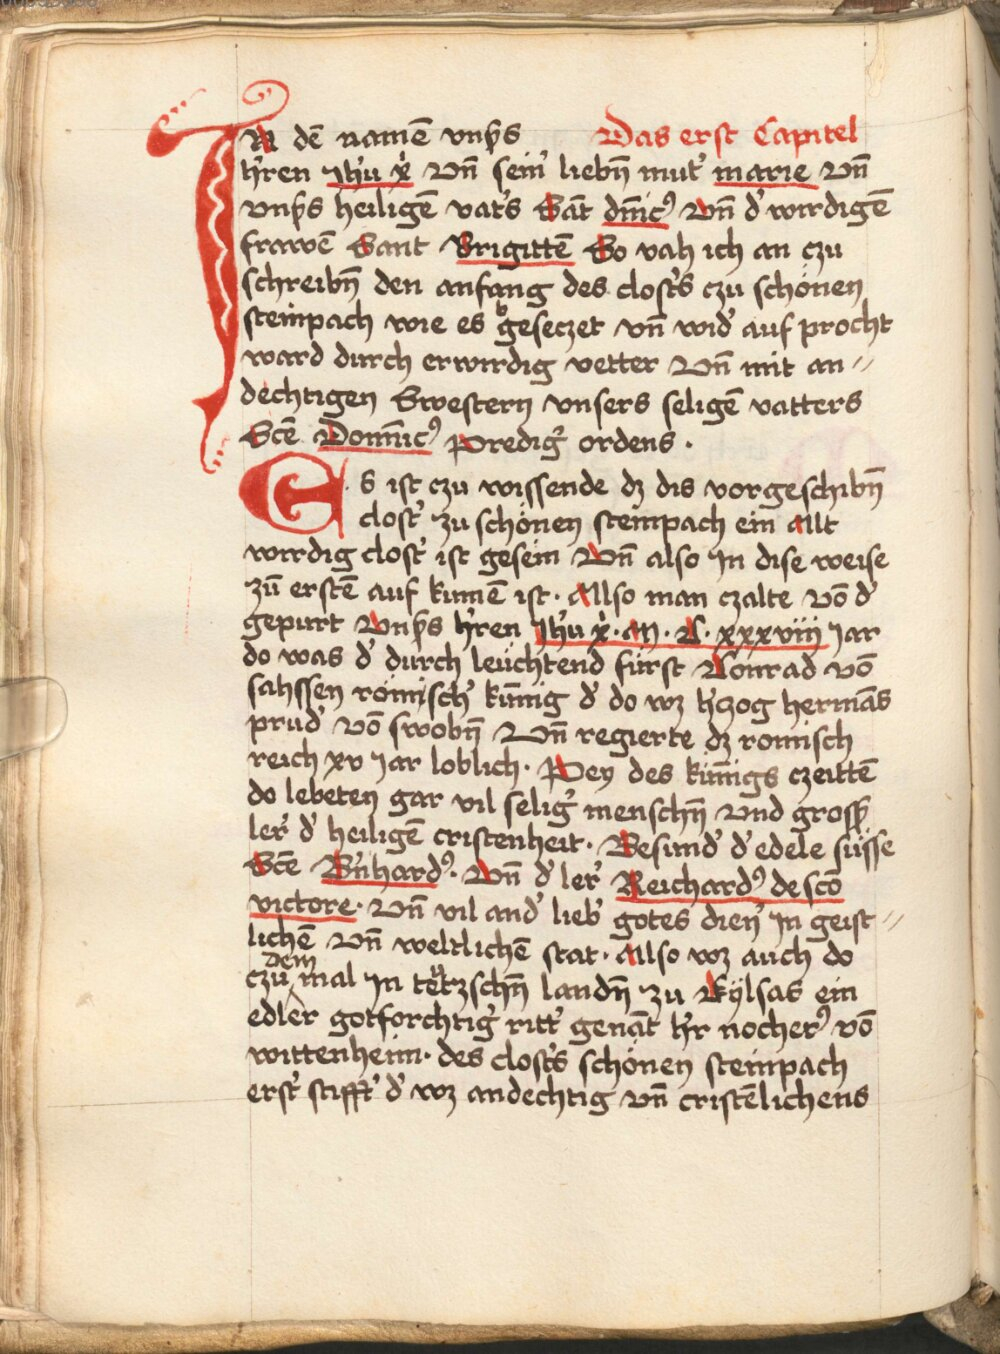 IN dē namē vnsˢs Das erst Capitel
h'ren Jhū x̄ vn̄ sein' liebn̄ mut' marie vn̄
vnsˢs heiligē vat's Sāt dn̄ic⁹ Vn̄ d' wirdigē
frawē Sant Brigittē So vah ich an czu
schreibn̄ den anfang des clost's czu schönen
steinpach wie es geseczet vn̄ wid' auf procht
ward durch erwirdig vetter Vn̄ mit an//
dechtigen Swestern vnsers seligē vatters
Scē Domīnic⁹ Predig' ordens.
ES ist czu wissende dz dis vorgeschibn̄
clost' zu schönen steinpach ein Allt
wirdig clost' ist gesein Vn̄ also Jn dise weise
zū erstē auf kumē ist. Allso man czalte vō d'
gepurt Vnsˢs h'ren Jhū x̄. M. C. xxxviii Jar
do was d' durch leüchtend fürst Conrad vō
sahssen römisch' kūnig d' do wz h'czog hermās
prud' vō swobn̄ Vn̄ regierte dz romisch
reich xv Jar loblich. Pey des kūnigs czeittē
do lebeten gar vil selig' menschn̄ Vnd gross'
ler' d' heiligē cristenheit. Besund' d' edele süsse
Scē B'nhard⁹. Vn̄ d' ler' Reichard⁹ de scō
victore. Vn̄ vil and' lieb' gotes dien' Jn geist//
lichē Vn̄ weltlichē stat. Allso wz auch do
czu dem mal Jn tetzschn̄ landn̄ zu Eylsas ein
edler gotforchtig' ritt' genāt h'r nocher⁹ vō
wittenheim. des clost's schönen steinpach
erst' stifft' d' wz andechtig vn̄ cristēlichens